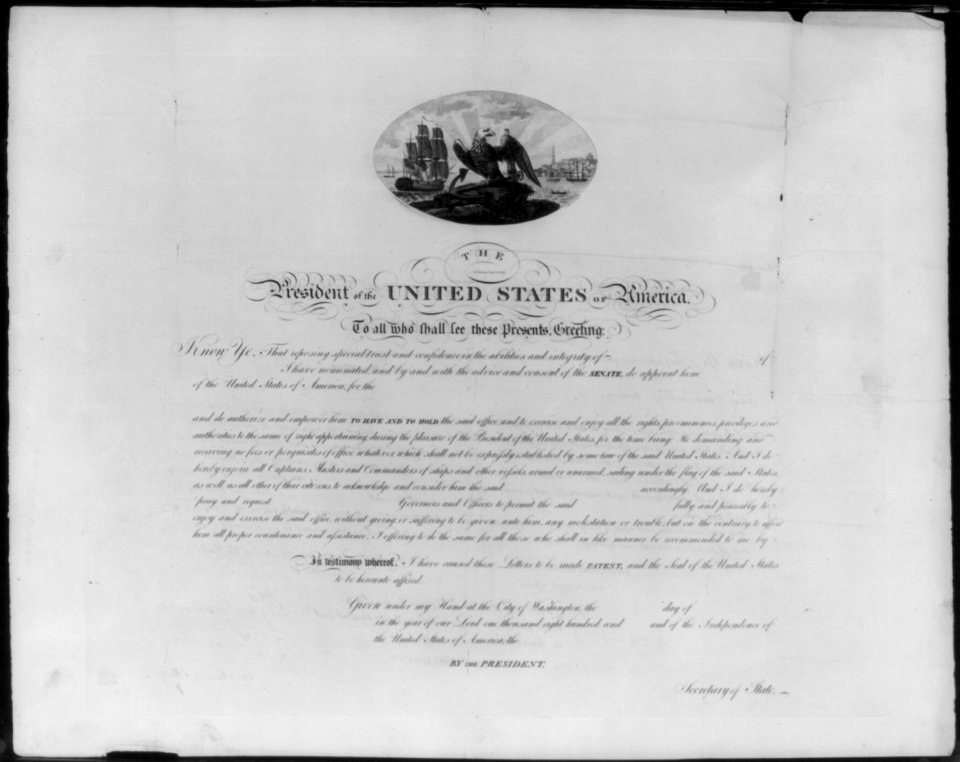 THE
President of the UNITED STATES OF America.
To all who shall see these Presents, Greeting:
Know Ye, That reposing special trust and confidence in the abilities and integrity of of
I have nominated, and by and with the advice and consent of the SENATE, do appoint him
of the United States of America, for the
and do authorize and empower him TO HAVE AND TO HOLD the said office, and to exercise and enjoy all the rights, preeminences, privileges and
authorities to the same of right appertaining, during the pleasure of the President of the United States, for the time being. He demanding and
receiving no fees or perquisites of office whatever, which shall not be expressly established by some law of the said United States. And I do
hereby enjoin all Captains, Masters and Commanders of ships and other vessels, armed or unarmed, sailing under the flag of the said States,
as well as all other of their citizens, to acknowledge and consider him the said accordingly. And I do hereby
pray and request Governors and Officers to permit the said fully and peaceably to
enjoy and exercise the said office, without giving, or suffering to be given unto him, any molestation or trouble, but on the contrary, to afford
him all proper countenance and assistance; I offering to do the same for all those who shall in like manner be recommended to me by
In testimony whereof, I have caused these Letters to be made PATENT, and the Seal of the United States
to be hereunto affixed.
Given under my Hand at the City of Washington, the day of
in the year of our Lord one thousand eight hundred and and of the Independence of
the United States of America, the
BY THE PRESIDENT.
Secretary of State.